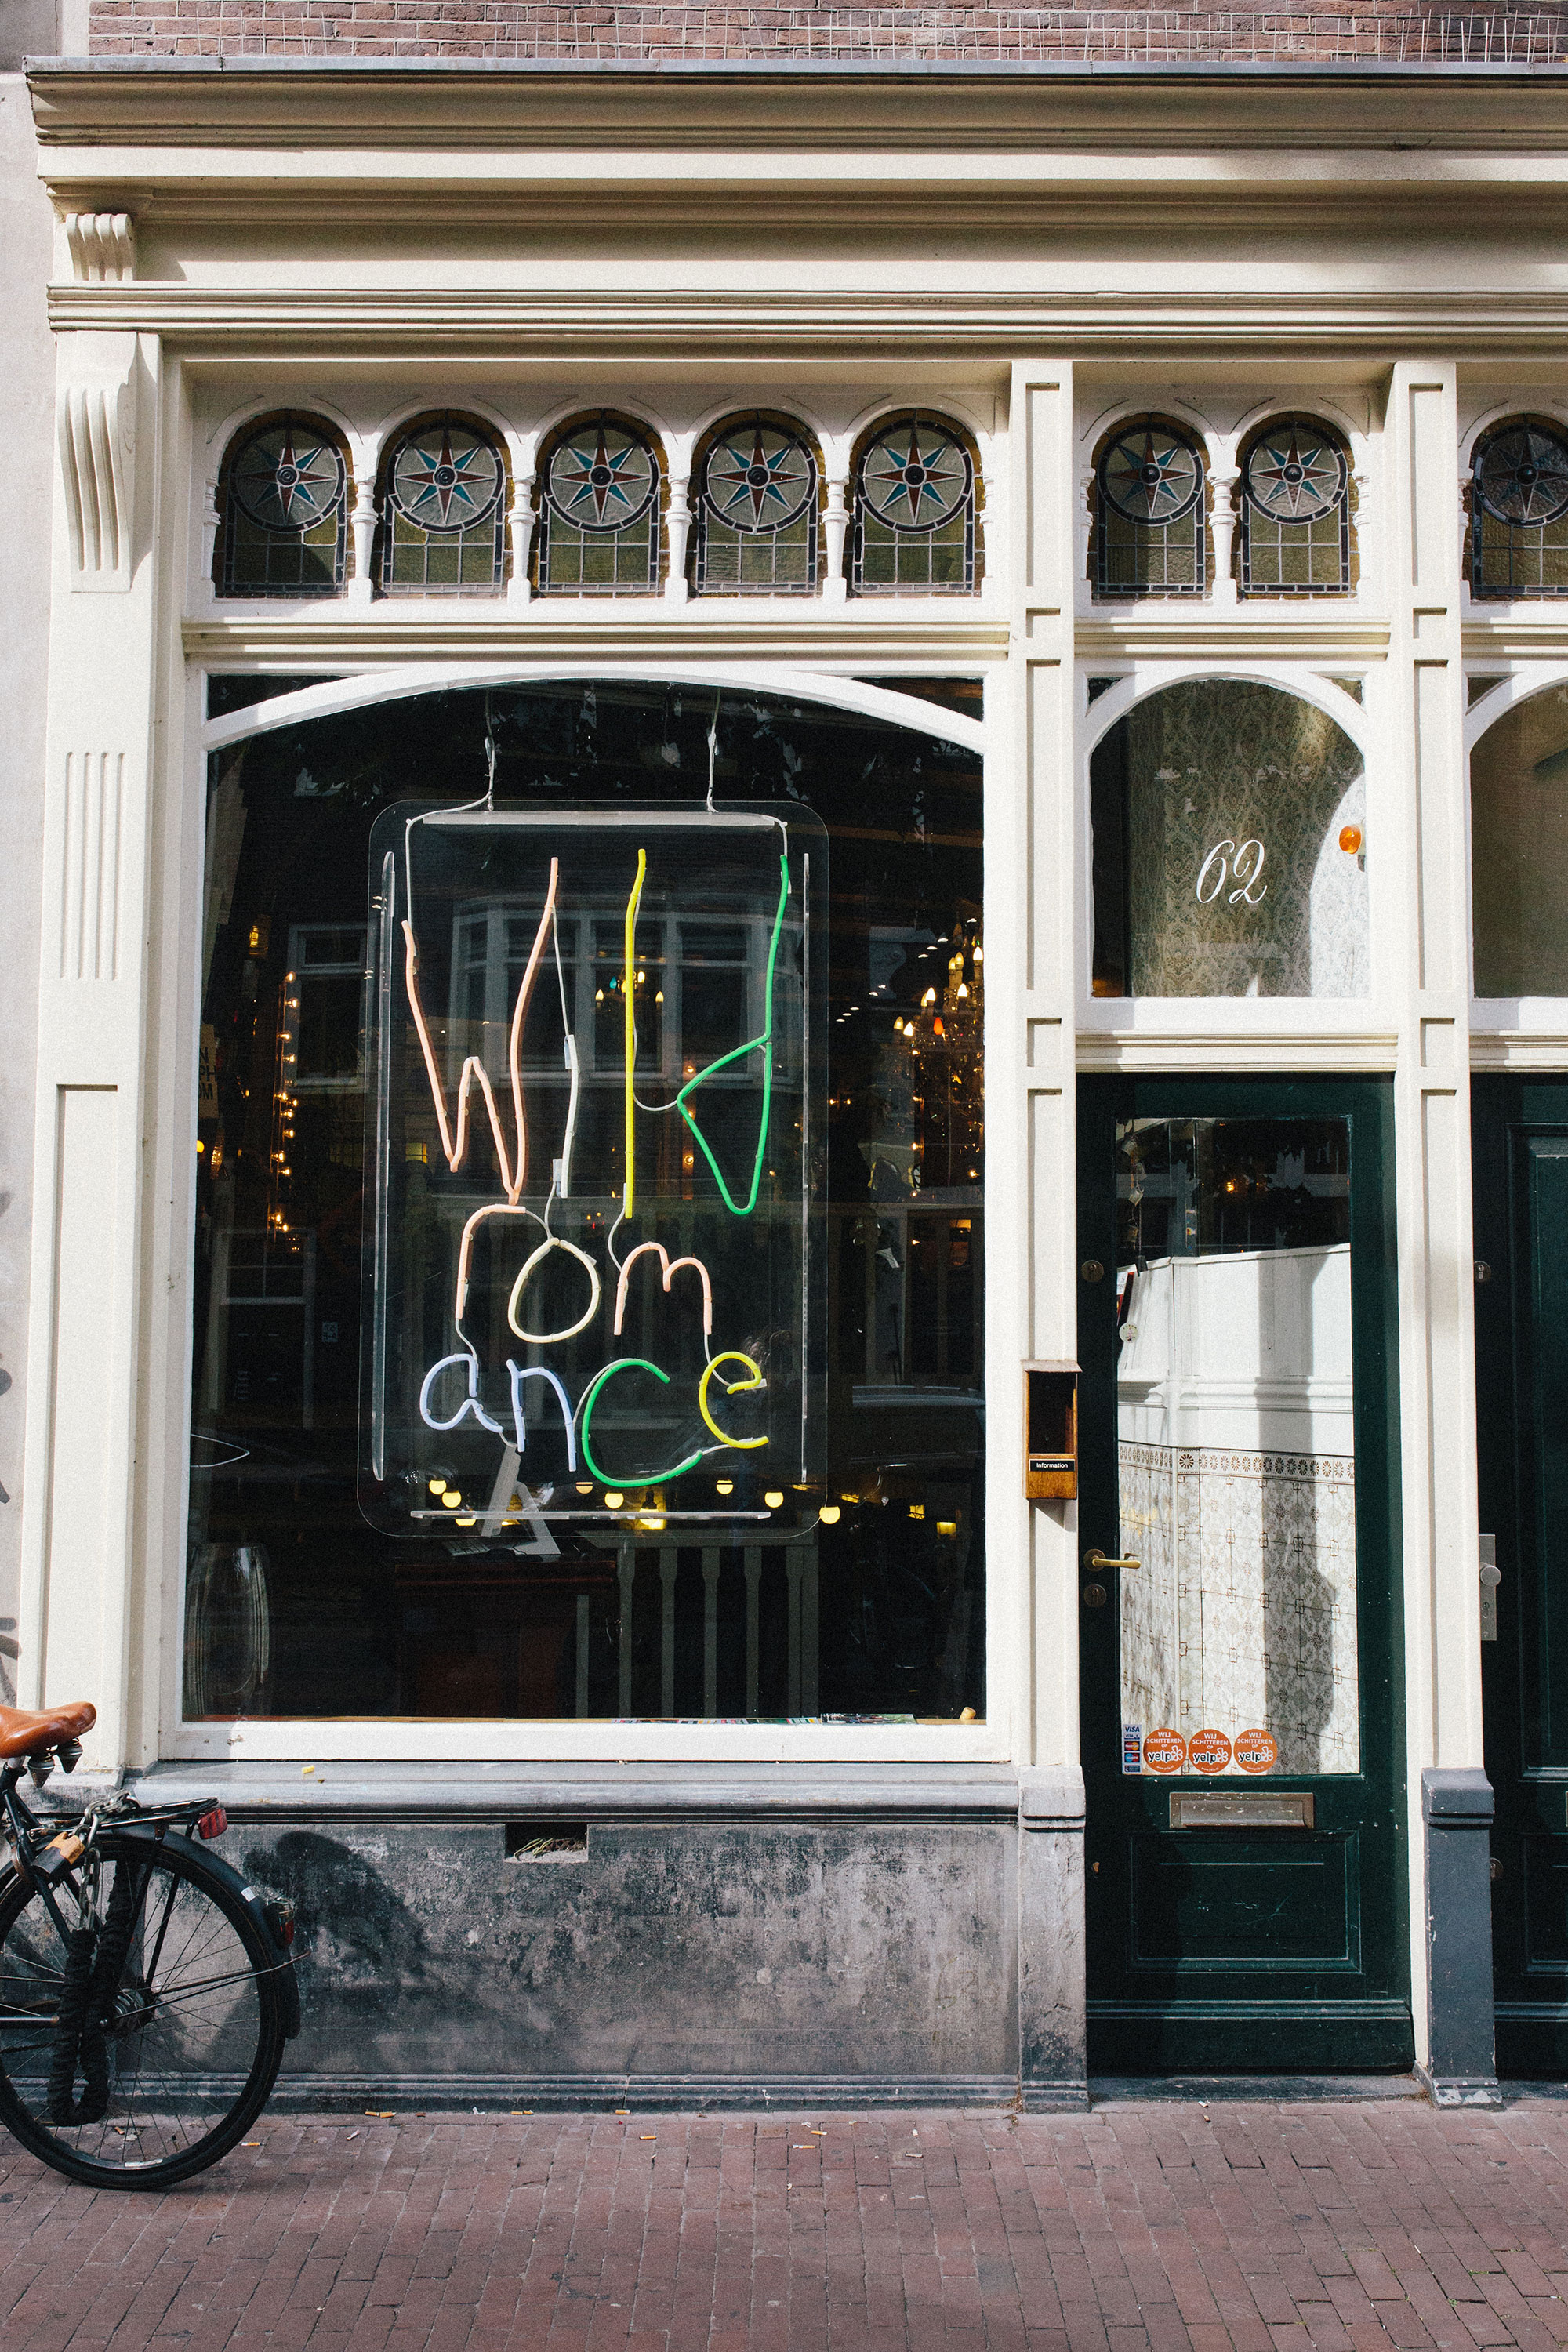 Wild
rom
ance
62
Information
VISA
WIJ SCHITTEREN OP yelp
WIJ SCHITTEREN OP yelp
WIJ SCHITTEREN OP yelp